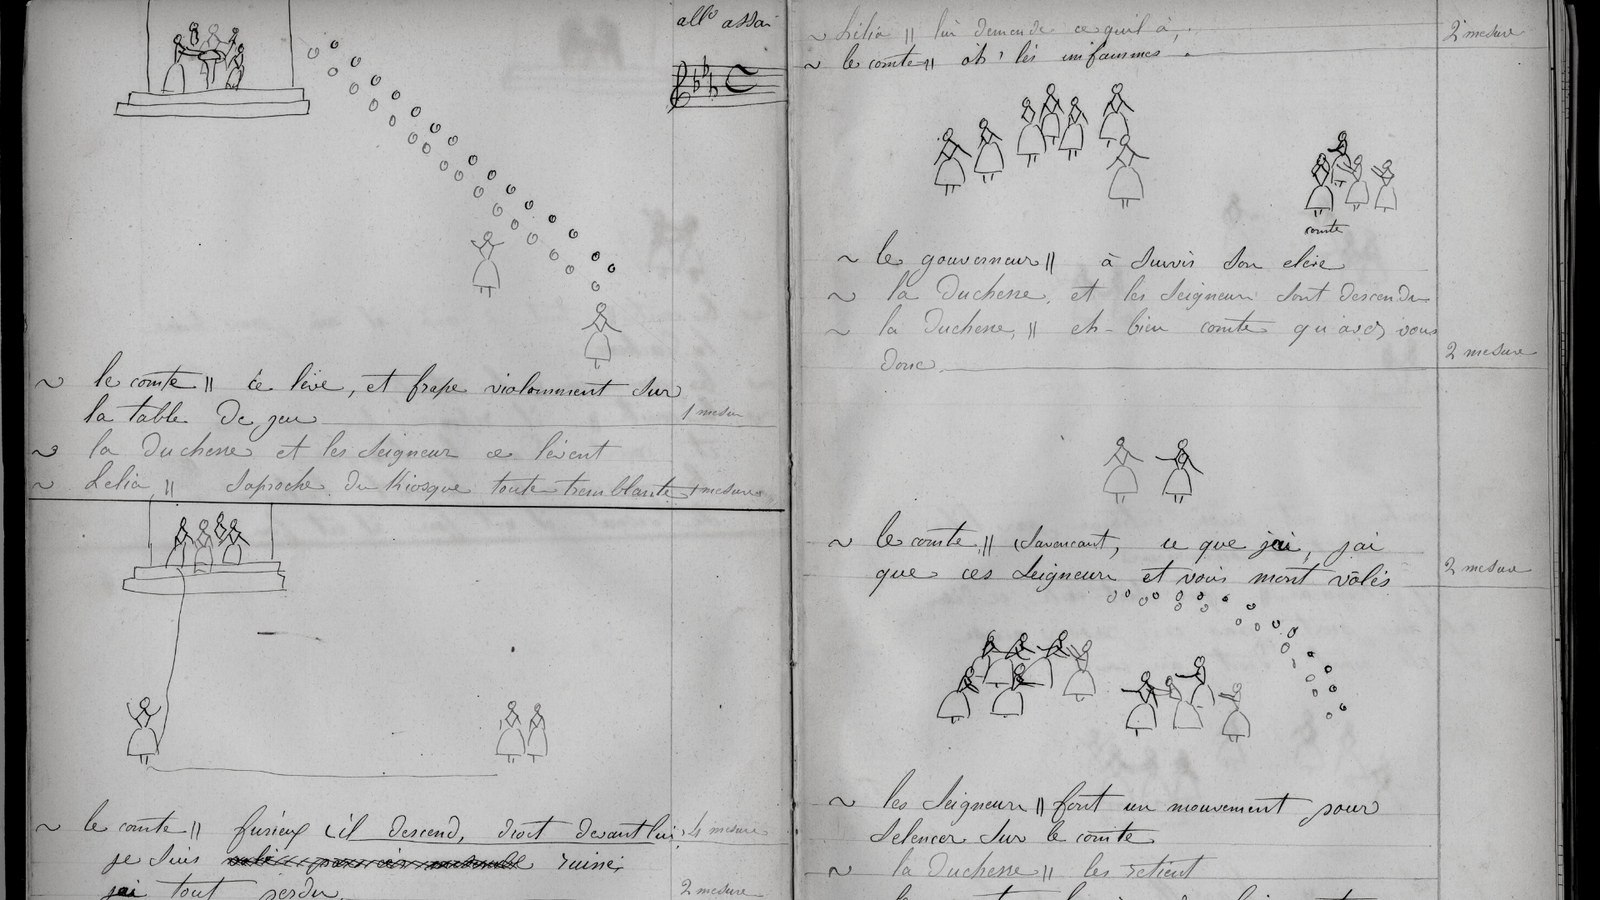 allo assai
~ le comte || ce lève, et frape violomment sur
la table De jeu
1 mesur
~ la Duchesse et les Seigneur ce lévent
~ Lelia, || saproche du Kiosque toute tremblante 1 mesure
~ le comte || furieux (il descend, droit devant lui, 4 mesure
je suis ruiné,
jai tout perdu
2 mesure
~ Lilia || lui demande ce quil à,
2 mesure
~ le comte || oh! lés imfammes
comte
~ le gouverneur || à Suivis Son elève
~ la Duchesse, et les Seigneur Sont descendu
~ la Duchesse, || eh-bien comte qu'avez vous
Donc
2 mesure
~ le comte, || savancant, ce que jai, jai
que ces Seigneur et vous mont volés
2 mesure
~ les Seigneur || font un mouvement pour
Selencer Sur le comte
~ la Duchesse || les retient